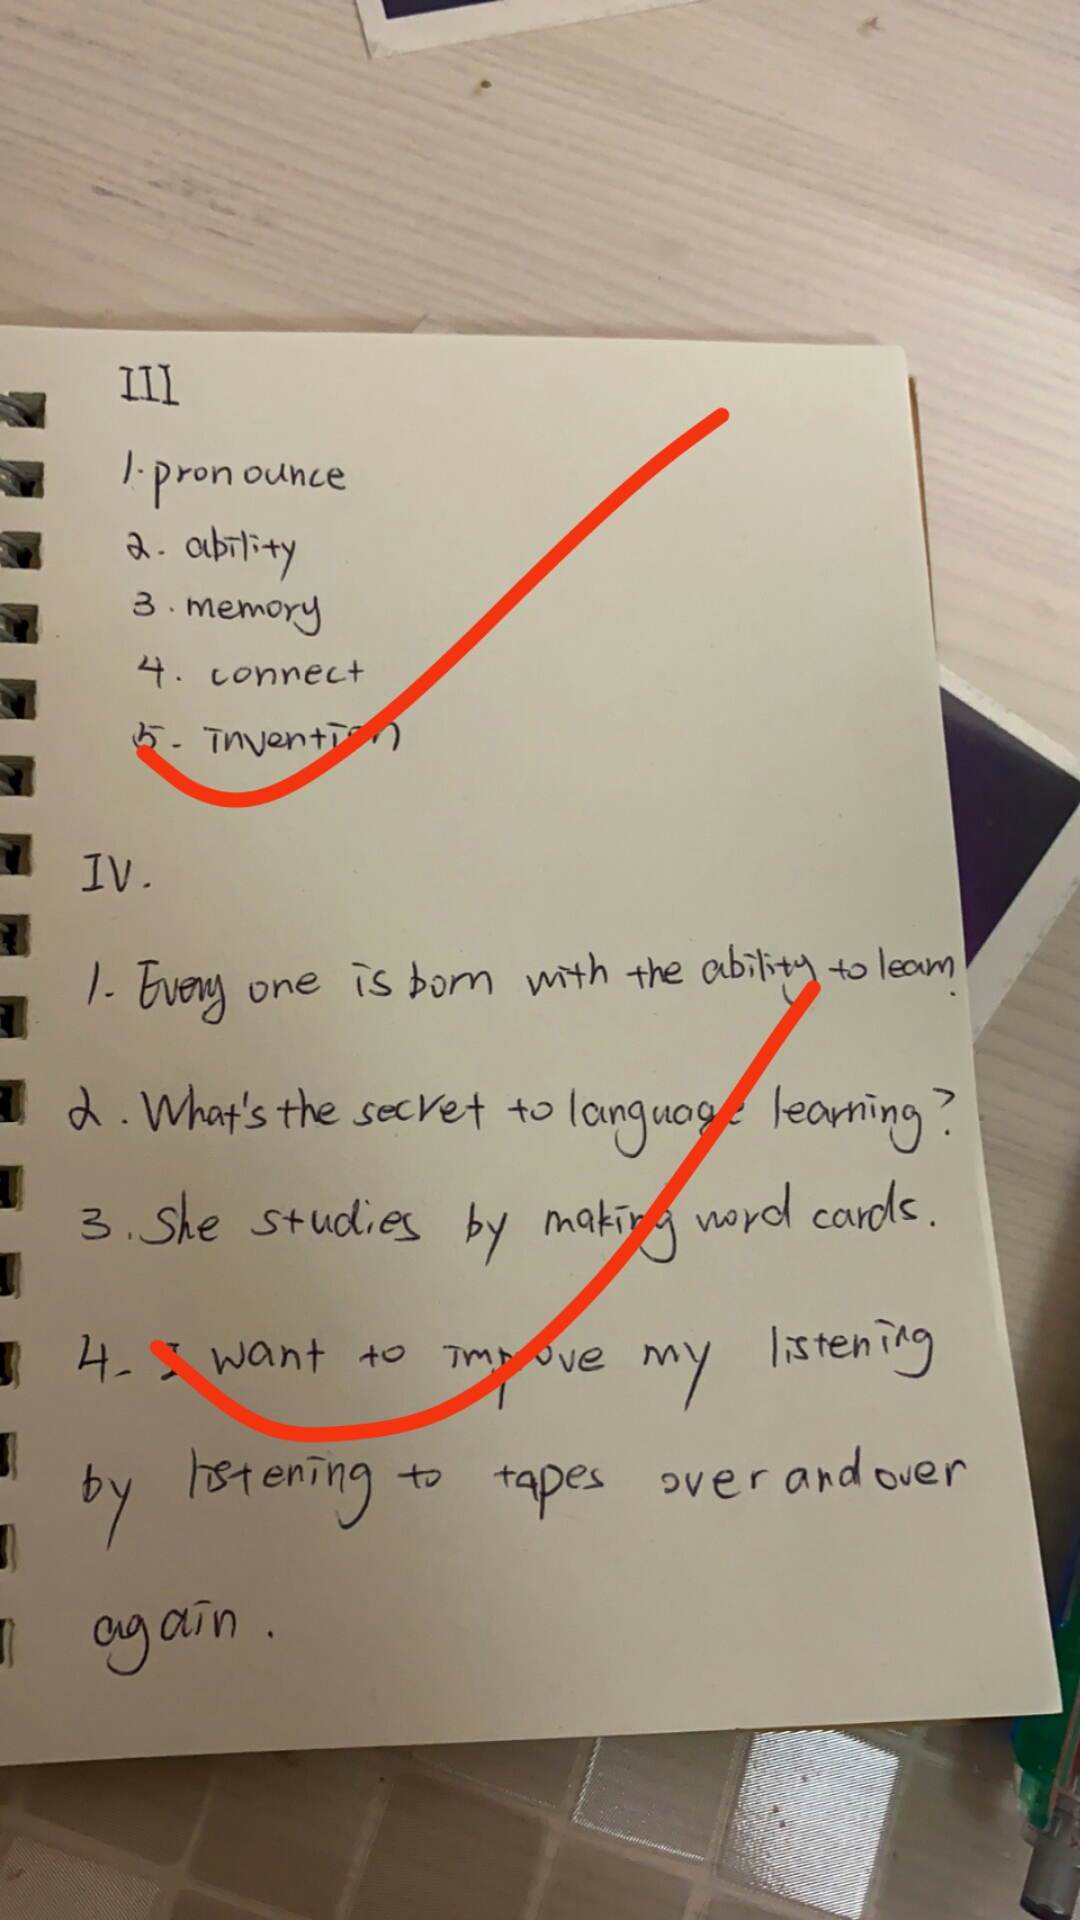 III
1. pronounce
2. ability
3. memory
4. connect
5. invention
IV.
1. Every one is born with the ability to learn.
2. What's the secret to language learning?
3. She studies by making word cards.
4. I want to improve my listening
by listening to tapes over and over
again.